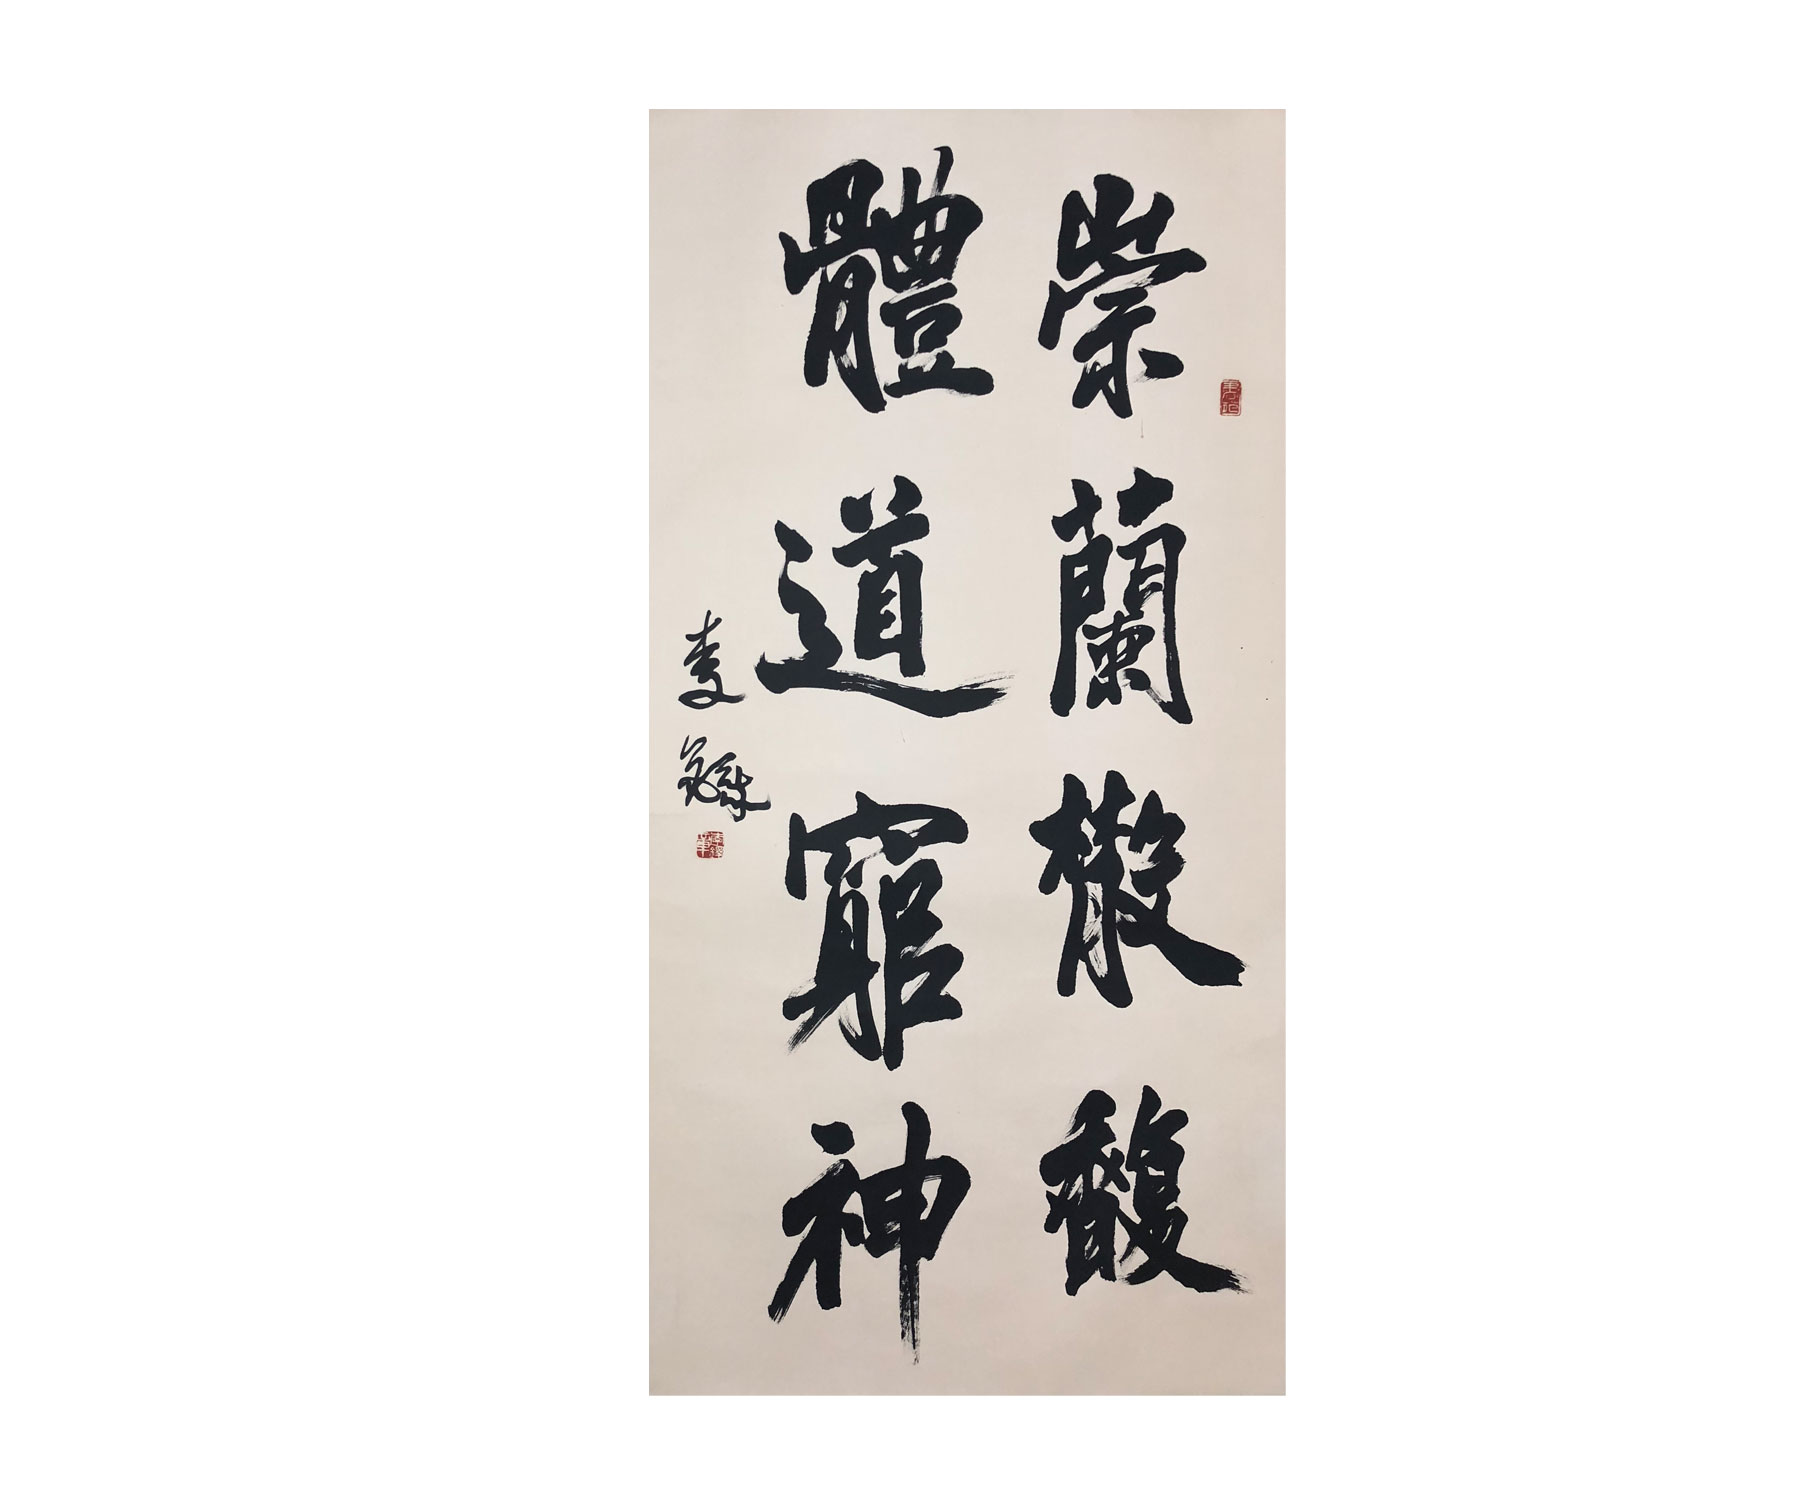 崇蘭散馥
體道窮神
李鐸